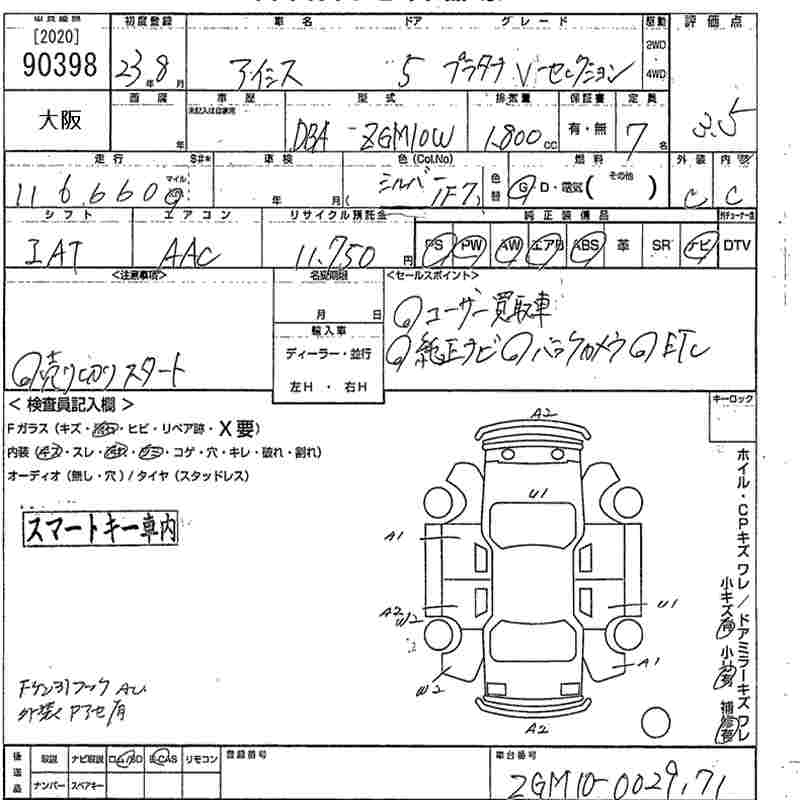 [2020]
90398
初度登録 車名 ドア グレード 駆動 評価点
23年8月 アイシス 5 プラタナ Vセレクション 2WD 4WD 3.5
大阪
車歴 型式 排気量 保証書 定員
未記入は自家用
年 DBA-ZGM10W 1,800cc 有・無 7名
走行 S#* 車検 色(Col.No) 燃料 外装 内装
マイル
116,660 年 月 シルバー 1F7 色替 G・D・電気( その他 ) C C
シフト エアコン リサイクル預託金 純正装備品
IAT AAC 11,750円 PS PW AW エアB ABS 革 SR ナビ DTV
<注意事項> 名変期限 <セールスポイント>
月 日
ユーザー買取車
輸入車
ディーラー・並行
純正ナビ バックカメラ ETC
売り切りスタート
左H・右H
< 検査員記入欄 > キーロック
Fガラス(キズ・ ・ヒビ・リペア跡・X要)
内装( ・スレ・ ・ ・コゲ・穴・キレ・破れ・割れ)
オーディオ(無し・穴)/タイヤ(スタッドレス)
スマートキー車内
A2
U1
A1
A2
W2
U1
W2
A1
A2
ホイル・CPキズワレ/ドアミラーキズワレ
小キズ有 小凹有 補修有
Fケン引フック
外装 有
後送品 取説 ナビ取説 ロム/SD B-CAS リモコン 登録番号 車台番号
ナンバー スペアキー
ZGM10-0029171